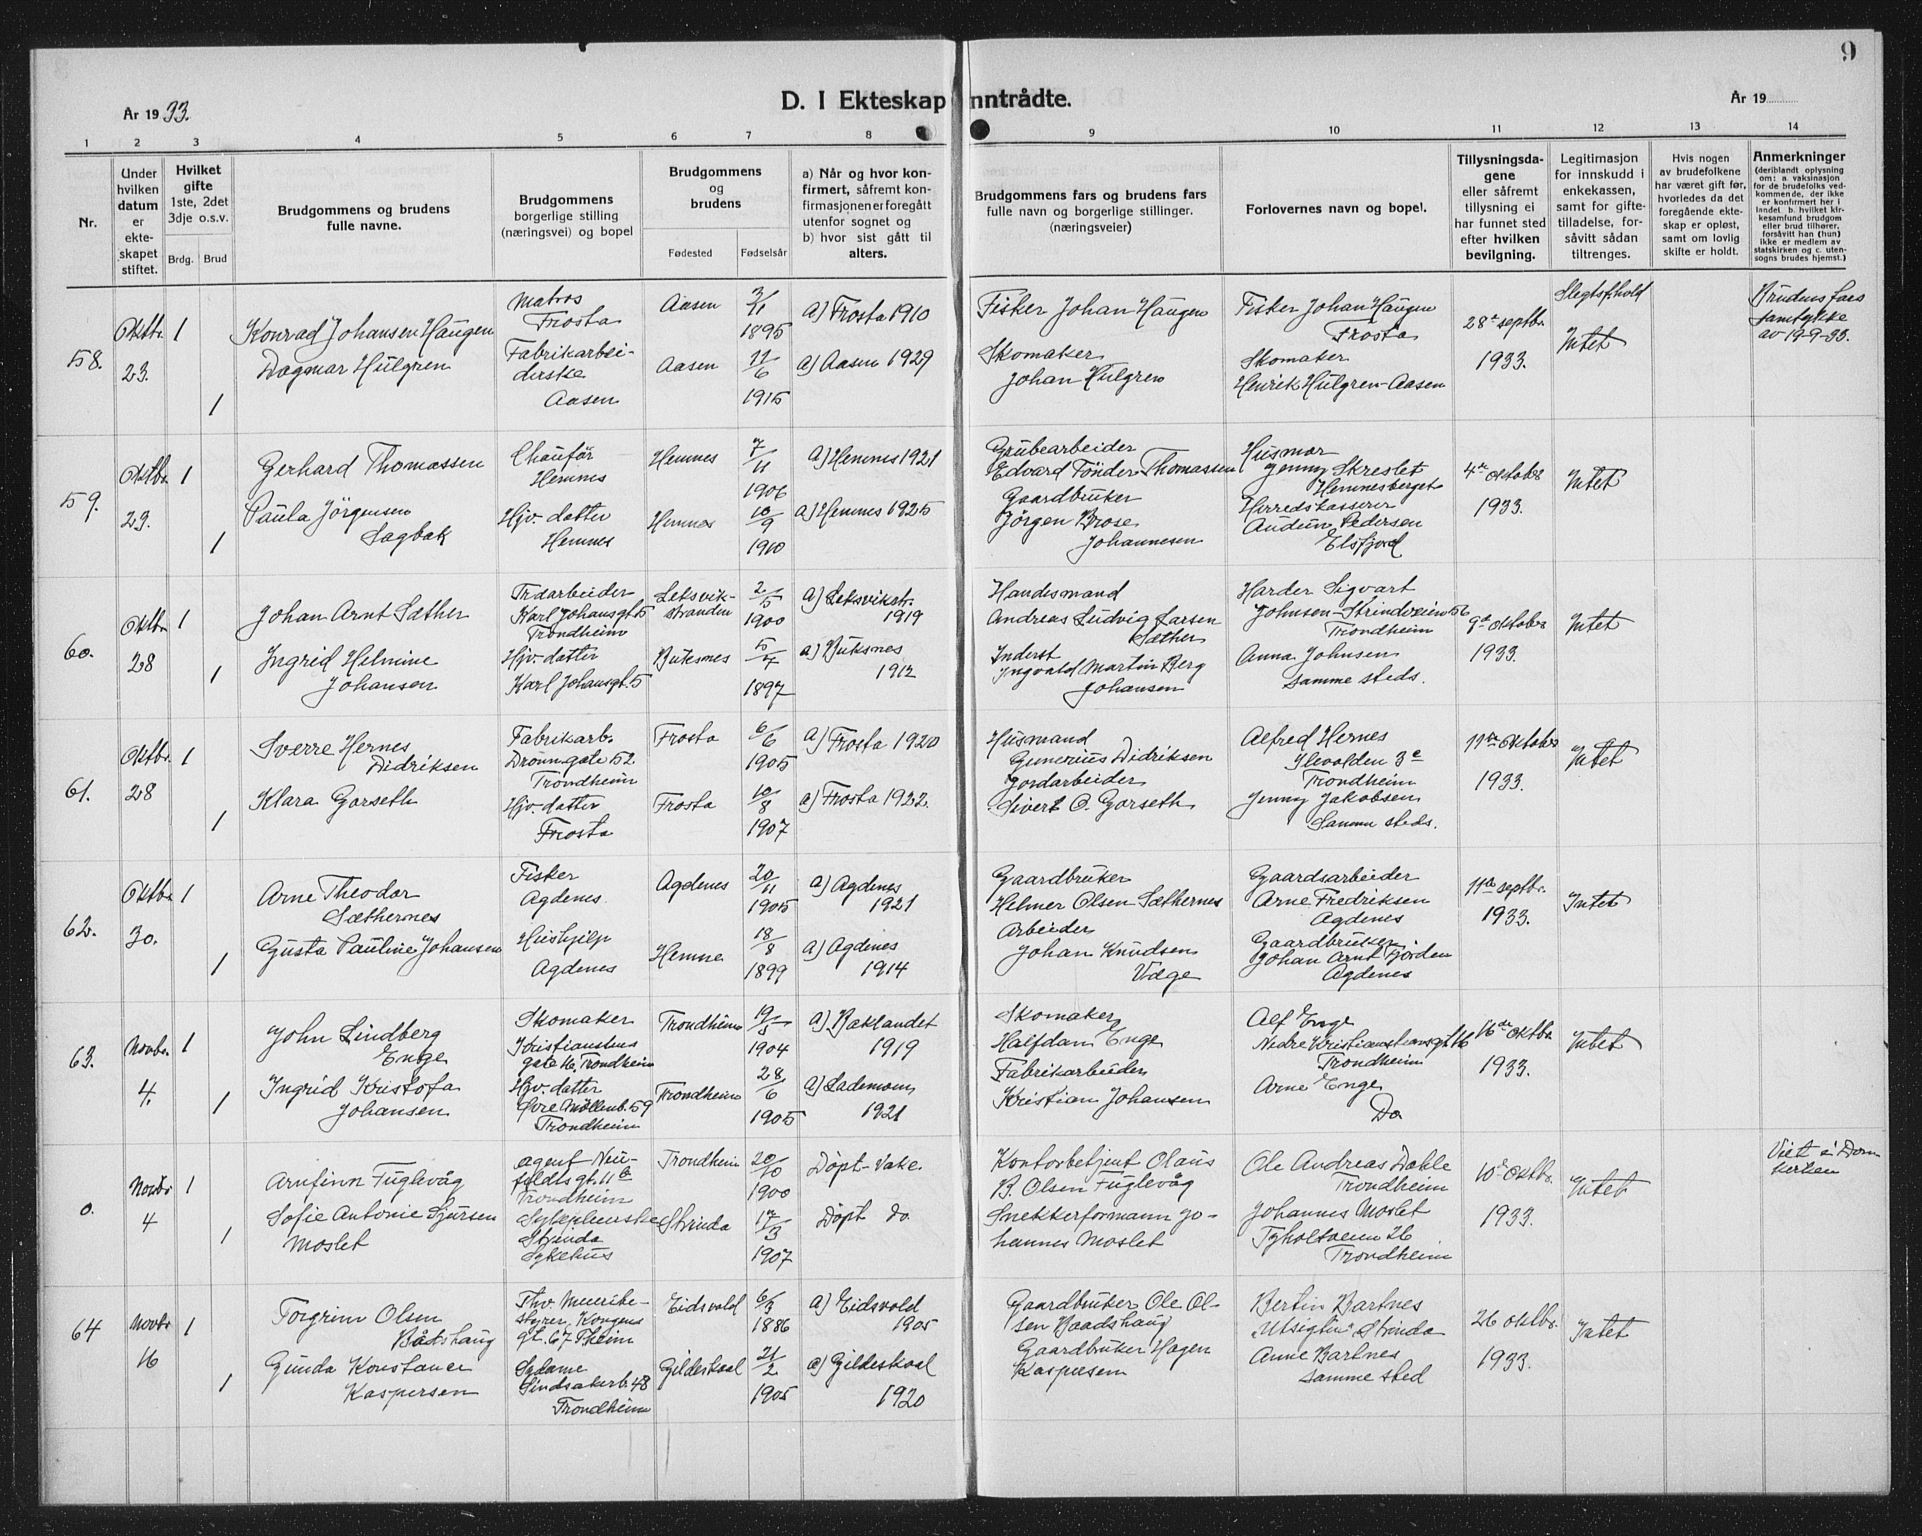 9
D. I Ekteskap inntrådte.
År 1933.
År 19
1 2 3 4 5 6 7 8 9 10 11 12 13 14
Nr.
Under hvilken datum er ekteskapet stiftet.
Hvilket gifte 1ste, 2det 3dje o.s.v.
Brdg. Brud
Brudgommens og brudens fulle navne.
Brudgommens borgerlige stilling (næringsvei) og bopel
Brudgommens og brudens
Fødested Fødselsår
a) Når og hvor konfirmert, såfremt konfirmasjonen er foregått utenfor sognet og b) hvor sist gått til alters.
Brudgommens fars og brudens fars fulle navn og borgerlige stillinger. (næringsveier)
Forlovernes navn og bopel.
Tillysningsdagene eller såfremt tillysning ei har funnet sted efter hvilken bevilgning.
Legitimasjon for innskudd i enkekassen, samt for giftetilladelse, forsåvitt sådan tiltrenges.
Hvis nogen av brudefolkene har været gift før, hvorledes da det foregående ekteskap er opløst, samt om lovlig skifte er holdt.
Anmerkninger (deriblandt oplysning om: a. vaksinasjon for de brudefolks vedkommende, der ikke er konfirmert her i landet. b. hvilket kirkesamfund brudgom eller brud tilhører, forsåvitt han (hun) ikke er medlem av statskirken og c. utensogns brudes hjemst.)
58. Oktbr. 23. 1
Konrad Johansen Haugen
Matros Frosta
Aasen 3/11 1895
a) Frosta 1910
Fisker Johan Haugen
Fisker Johan Haugen Frosta
28de septbr. 1933.
Slegtsfhold Intet
Brudens fars samtykke av 19-9-33.
1 Dagmar Hulgren
Fabrikarbeiderske Aasen
Aasen 11/6 1915
a) Aasen 1929
Skomaker Johan Hulgren
Skomaker Henrik Hulgren-Aasen
59. Oktbr. 23. 1
Gerhard Thomassen
Chauför Hemnes
Hemnes 7/11 1906
a) Hemnes 1921
Grubearbeider Edvard Tönder Thomassen
Husmor Jenny Skreslet Hemnesberget
4de oktober 1933.
Intet
1 Paula Jörgensen Sagbak
Hjv. datter Hemnes
Hemnes 10/9 1910
a) Hemnes 1925
Gaardbruker Jörgen Brose Johannesen
Herredskasserer Audun Pedersen Elsfjord
60. Oktbr. 28 1
Johan Arnt Sæther
Træarbeider Karl Johansgt. 5 Trondheim
Leksvikstranden 2/5 1900
a) Leksvikstr. 1919
Handesmand Andreas Ludvig Larsen Sæther
Harder Sigvart Johnsen-Strindveien 56 Trondheim
9de oktober 1933.
Intet
1 Ingrid Helmine Johansen
Hjv. datter Karl Johansgt. 5
Buksnes 5/4 1897
a) Buksnes 1912
Inderst Ingvald Martin Berg Johansen
Anna Johnsen samme steds.
61. Oktbr. 28 1
Sverre Hernes Didriksen
Fabrikarb. Dronn.gate 52 Trondheim
Frosta 6/6 1905
a) Frosta 1920
Husmand Gunerius Didriksen
Alfred Hernes Ilevolden 3e Trondheim
11te oktober 1933.
Intet
1 Klara Gorseth
Hjv. datter Frosta
Frosta 10/8 1907
a) Frosta 1922.
Jordarbeider Sivert O. Gorseth
Jenny Jakobsen Samme steds.
62. Oktbr. 30. 1
Arne Theodor Sæthernes
Fisker Agdenes
Agdenes 20/11 1905
a) Agdenes 1921
Gaardbruker Helmer Olsen Sæthernes
Gaardsarbeider Arne Fredriksen Agdenes
11te septbr. 1933.
Intet
1 Gusta Pauline Johansen
Hushjelp Agdenes
Hemne 18/8 1899
a) Agdenes 1914
Arbeider Johan Knudsen Væge
Gaardbruker Johan Arnt Fjorden Agdenes
63. Novbr. 4. 1
John Lindberg Enge
Skomaker Kristianstens gate 16, Trondheim
Trondheim 19/5 1904
a) Baklandet 1919
Skomaker Halfdan Enge
Alf Enge Nedre Kristianstensgt. 16 Trondheim
16de oktbr. 1933.
Intet
1 Ingrid Kristofa Johansen
Hjv. datter Øvre Möllenb. 59 Trondheim
Trondheim 28/6 1905
a) Lademoen 1921
Fabrikarbeider Kristian Johansen
Arne Enge Do
0. Novbr 4 1
Arnfinn Fuglevåg
Agent Neufeldtsgt. 11b Trondheim
Trondheim 20/10 1900
Döpt-Vake.
Kontorbetjent Olaus B. Olsen Fuglevåg
Ole Andreas Dahle Trondheim
10de oktbr. 1933.
Intet
Viet i Domkirken
1 Sofie Antonie Sjursen Moslet
Sykepleierske Strinda Sykehus
Strinda 17/3 1907
Döpt do.
Snekkerformann Johannes Moslet
Johannes Moslet Tyholtveien 26 Trondheim
64 Novbr 16 1
Torgrim Olsen Båtshaug
Fhv. Meieribestyrer, Kongens gt. 67 Theim
Eidsvold 6/3 1886
a) Eidsvold 1905
Gaardbruker Ole Olsen Baadshaug
Bertin Bartnes "Utsigten" Strinda
26 oktbr. 1933.
Intet
1 Gunda Konstance Kaspersen
Sydame Lindsakerb. 48 Trondheim
Gildeskaal 21/2 1905
a) Gildeskaal 1920
Gaardbruker Hagen Kaspersen
Anne Bartnes samme sted